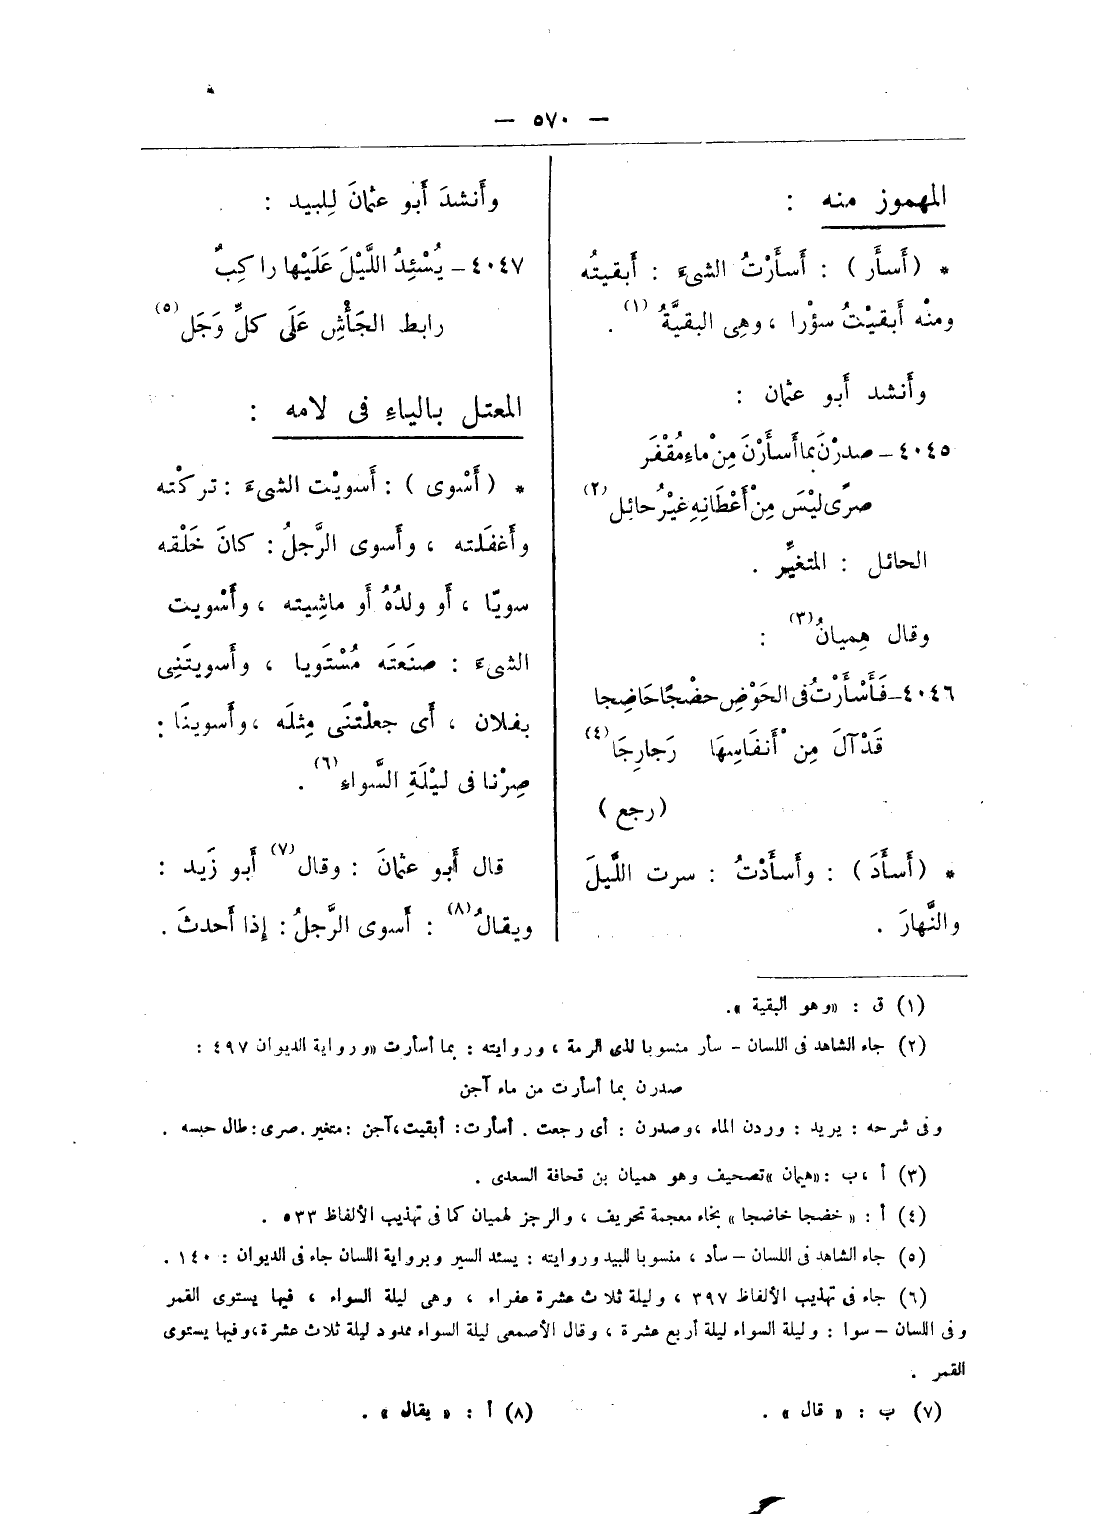 — ٥٧٠ —
المهموز منه :
* ( أَسأَر ) : أَسأَرْتُ الشىءَ : أَبقيتُه
ومنْه أَبقيْتُ سؤْرا ، وهِى البقيَّةُ (١) .
وأَنشد أَبو عثمان :
٤٠٤٥ – صدرْنَ بما أَسأَرْنَ مِنْ ماءٍ مُقْفَرٍ
صرًى ليْسَ مِنْ أَعْطَانِهِ غيْرُ حائِل (٢)
الحائل : المتغيِّر .
وقال هِميانُ (٣) :
٤٠٤٦ – فَأَسْأَرْتُ فى الحَوْضِ حضْجًا حَاضِجا
قَدْ آلَ مِن أَنفَاسِهَا رَجارِجَا (٤)
( رجع )
* ( أَسأَدَ ) : وأَسأَدْتُ : سرت اللَّيلَ
والنَّهارَ .
وأَنشدَ أَبو عثمانَ لِلبيد :
٤٠٤٧ – يُسْئِدُ اللَّيْلَ عَلَيْها راكِبٌ
رابط الجَأْشِ عَلَى كلِّ وَجَل (٥)
المعتل بالياءِ فى لامه :
* ( أَسْوى ) : أَسويْت الشىءَ : تركْته
وأَغفَلته ، وأَسوى الرَّجلُ : كانَ خَلْقه
سويّا ، أَو ولدُهُ أَو ماشِيته ، وأَسْويت
الشىءَ : صنَعتَه مُسْتَويا ، وأَسويتَنِى
بفلان ، أَى جعلْتنَى مِثلَه ، وأَسوينَا :
صِرْنا فى ليْلَةِ السَّواءِ (٦) .
قال أَبو عثمانَ : وقال (٧) أَبو زَيد :
ويقالُ (٨) : أَسوى الرَّجلُ : إِذا أَحدثَ .
(١) ق : «وهو البقية» .
(٢) جاء الشاهد فى اللسان – سأر منسوبا لذى الرمة ، وروايته : بما أسأرت «ورواية الديوان ٤٩٧ :
صدرن بما أسأرت من ماء آجن
وفى شرحه : يريد : وردن الماء ، وصدرن : أى رجعت . أسأرت : أبقيت ، آجن : متغير . صرى : طال حبسه .
(٣) أ ، ب : «هيمان» تصحيف وهو هميان بن قحافة السعدى .
(٤) أ : « خضجا خاضجا » بخاء معجمة تحريف ، والرجز لهميان كما فى تهذيب الألفاظ ٥٣٣ .
(٥) جاء الشاهد فى اللسان – سأد ، منسوبا للبيد وروايته : يسئد السير وبرواية اللسان جاء فى الديوان : ١٤٠ .
(٦) جاء فى تهذيب الألفاظ ٣٩٧ ، وليلة ثلاث عشرة عفراء ، وهى ليلة السواء ، فيها يستوى القمر
وفى اللسان – سوا : وليلة السواء ليلة أربع عشرة ، وقال الأصمعى ليلة السواء ممدود ليلة ثلاث عشرة ، وفيها يستوى
القمر .
(٧) ب : « قال » .
(٨) أ : « يقال » .